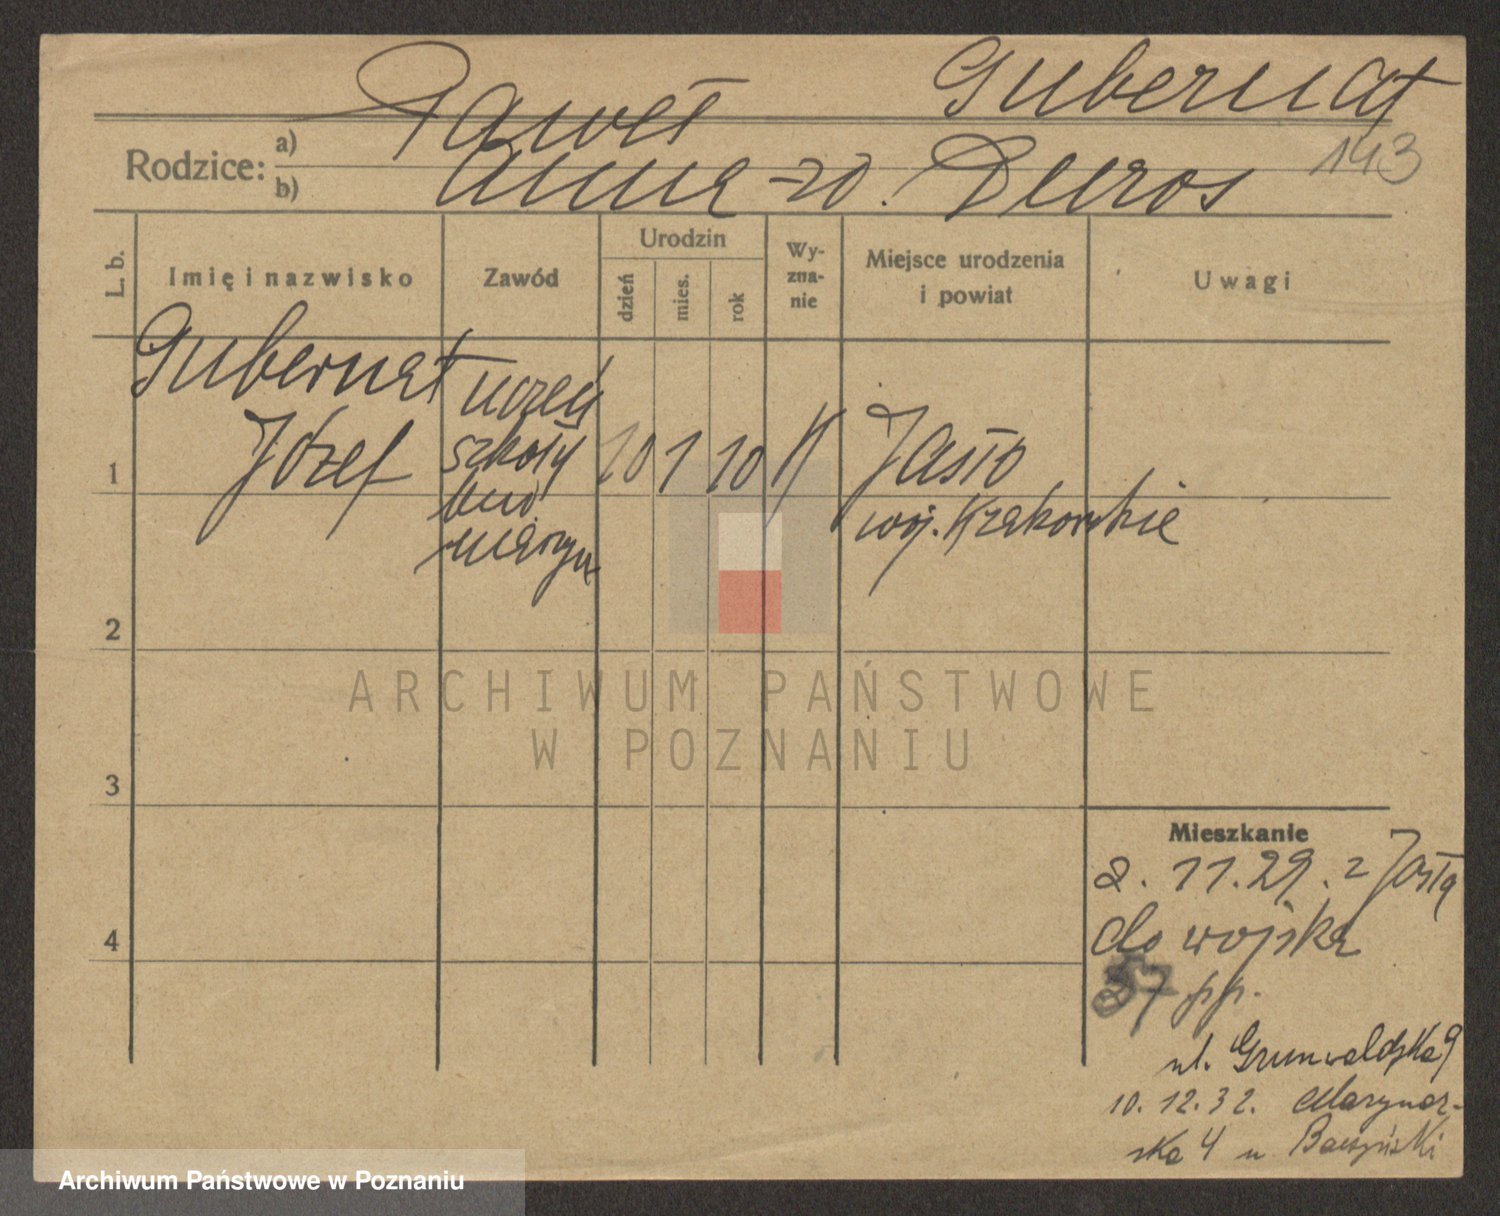 Gubernat
Paweł
Rodzice: a)
b)
Anna z d. Duros
143
L. b.
Imię i nazwisko
Zawód
Urodzin
dzień
mies.
rok
Wy-
zna-
nie
Miejsce urodzenia
i powiat
Uwagi
Gubernat
Józef
uczeń
szkoły
1
10 1 10
Jasło
woj. Krakowskie
2
3
4
Mieszkanie
2. 11. 29. z Jasła
do wojska
57 pp.
ul. Grunwaldzka 9
10. 12. 32. Marynar-
ska 4 u Baczyński
ARCHIWUM PAŃSTWOWE
W POZNANIU
Archiwum Państwowe w Poznaniu